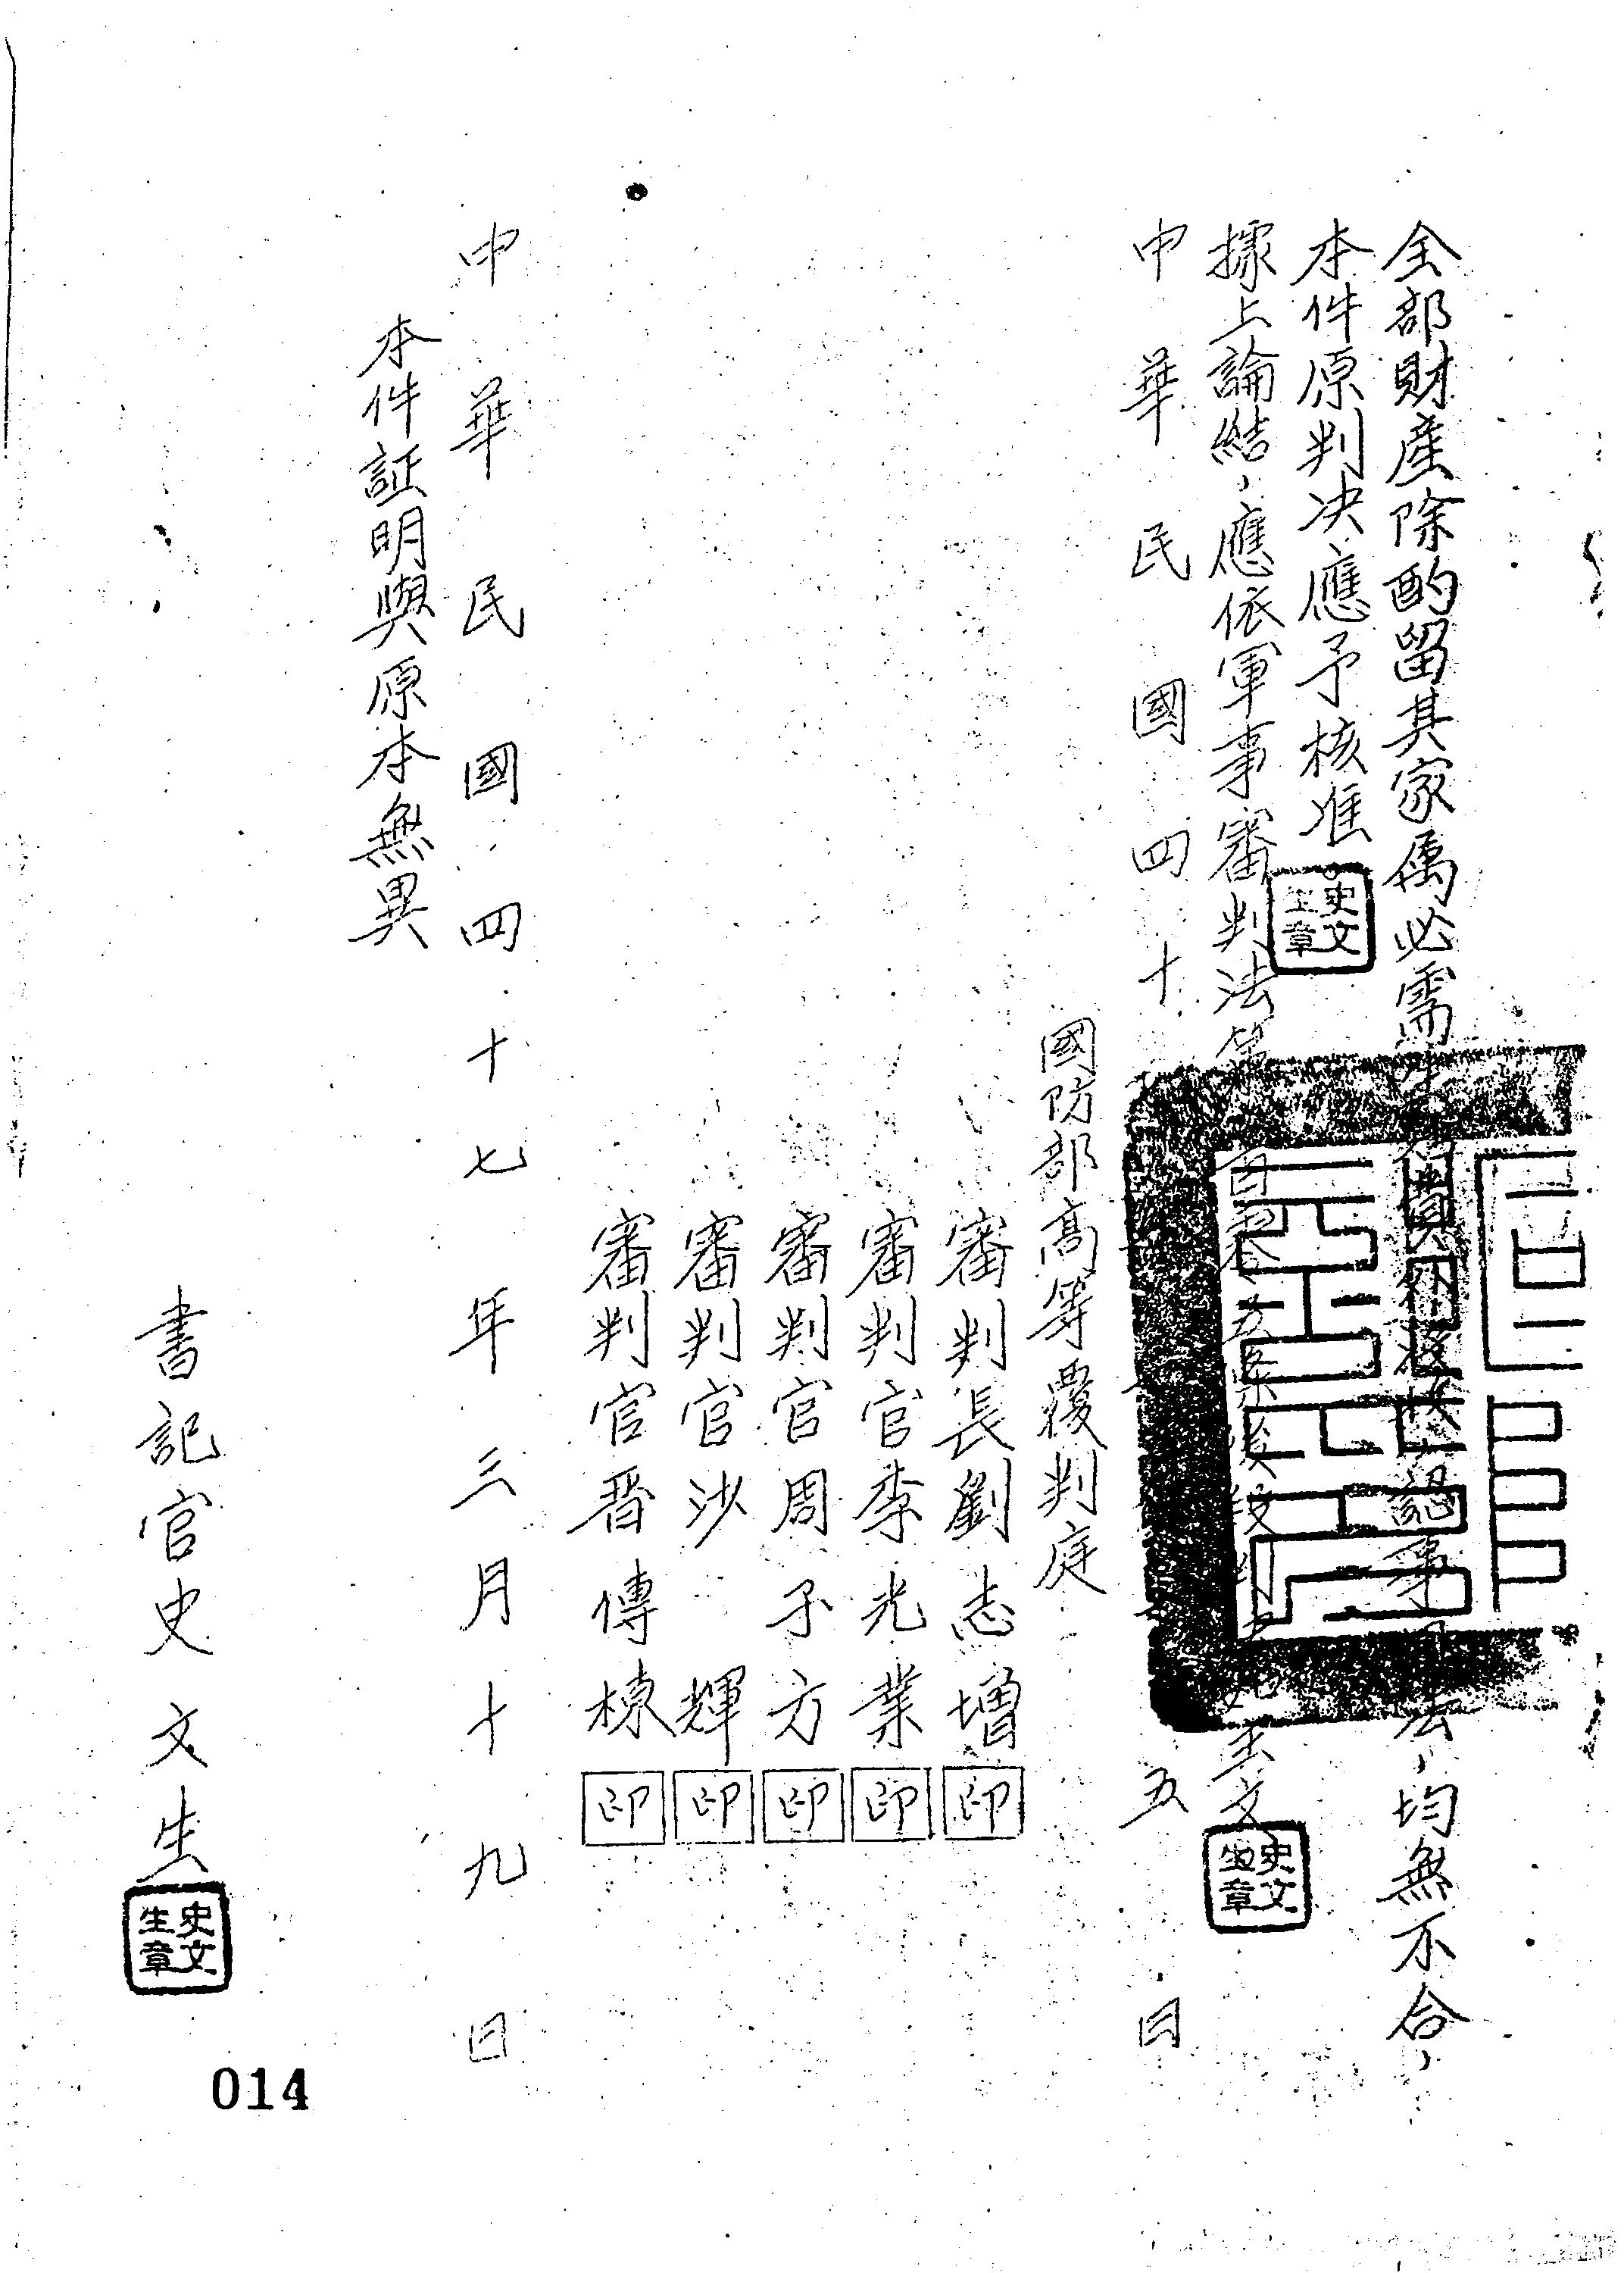 全部財產除酌留其家屬必需生活費外沒收認事用法,均無不合,
本件原判决應予核准。
據上論結,應依軍事審判法第百五條後段判如主文
中華民國四十五日
國防部高等覆判庭
審判長劉志增 印
審判官李光業 印
審判官周子方 印
審判官沙輝 印
審判官晋傳棟 印
中華民國四十七年三月十九日
本件証明與原本無異
書記官史文生
史文生章
史文生章
史文生章
014